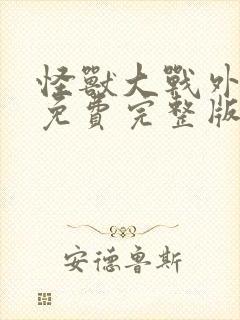 怪獸大戰外
免費完整版
安德魯斯